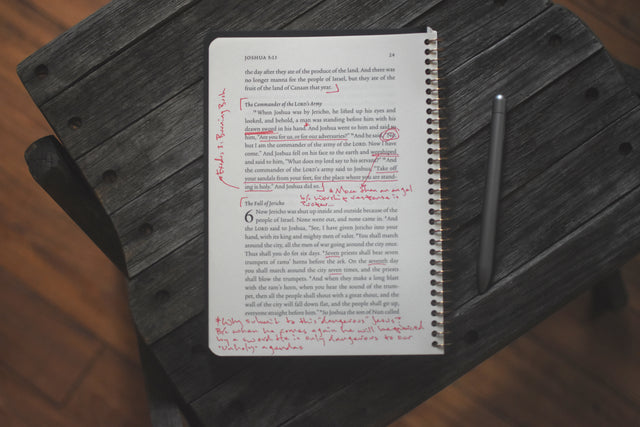 JOSHUA 5:13
24
the day after they ate of the produce of the land. And there was
no longer manna for the people of Israel, but they ate of the
fruit of the land of Canaan that year.
The Commander of the LORD's Army
When Joshua was by Jericho, he lifted up his eyes and
looked, and behold, a man was standing before him with his
drawn sword in his hand. And Joshua went to him and said to
him, "Are you for us, or for our adversaries?" And he said, "No;
but I am the commander of the army of the LORD. Now I have
come." And Joshua fell on his face to the earth and worshiped
and said to him, "What does my lord say to his servant?" And
the commander of the LORD's army said to Joshua, "Take off
your sandals from your feet, for the place where you are stand-
ing is holy." And Joshua did so.
Exodus 3: Burning Bush
*More than an angel
b/c worship response is
The Fall of Jericho
6 Now Jericho was shut up inside and outside because of the
people of Israel. None went out, and none came in. And
the LORD said to Joshua, "See, I have given Jericho into your
hand, with its king and mighty men of valor. You shall march
around the city, all the men of war going around the city once.
Thus shall you do for six days. Seven priests shall bear seven
trumpets of rams' horns before the ark. On the seventh day
you shall march around the city seven times, and the priests
shall blow the trumpets. And when they make a long blast
with the ram's horn, when you hear the sound of the trum-
pet, then all the people shall shout with a great shout, and the
wall of the city will fall down flat, and the people shall go up,
everyone straight before him." So Joshua the son of Nun called
*Why submit to this "dangerous" Jesus?
B/c when he comes again he will
by a sword. He is only dangerous to our
"unholy" agendas